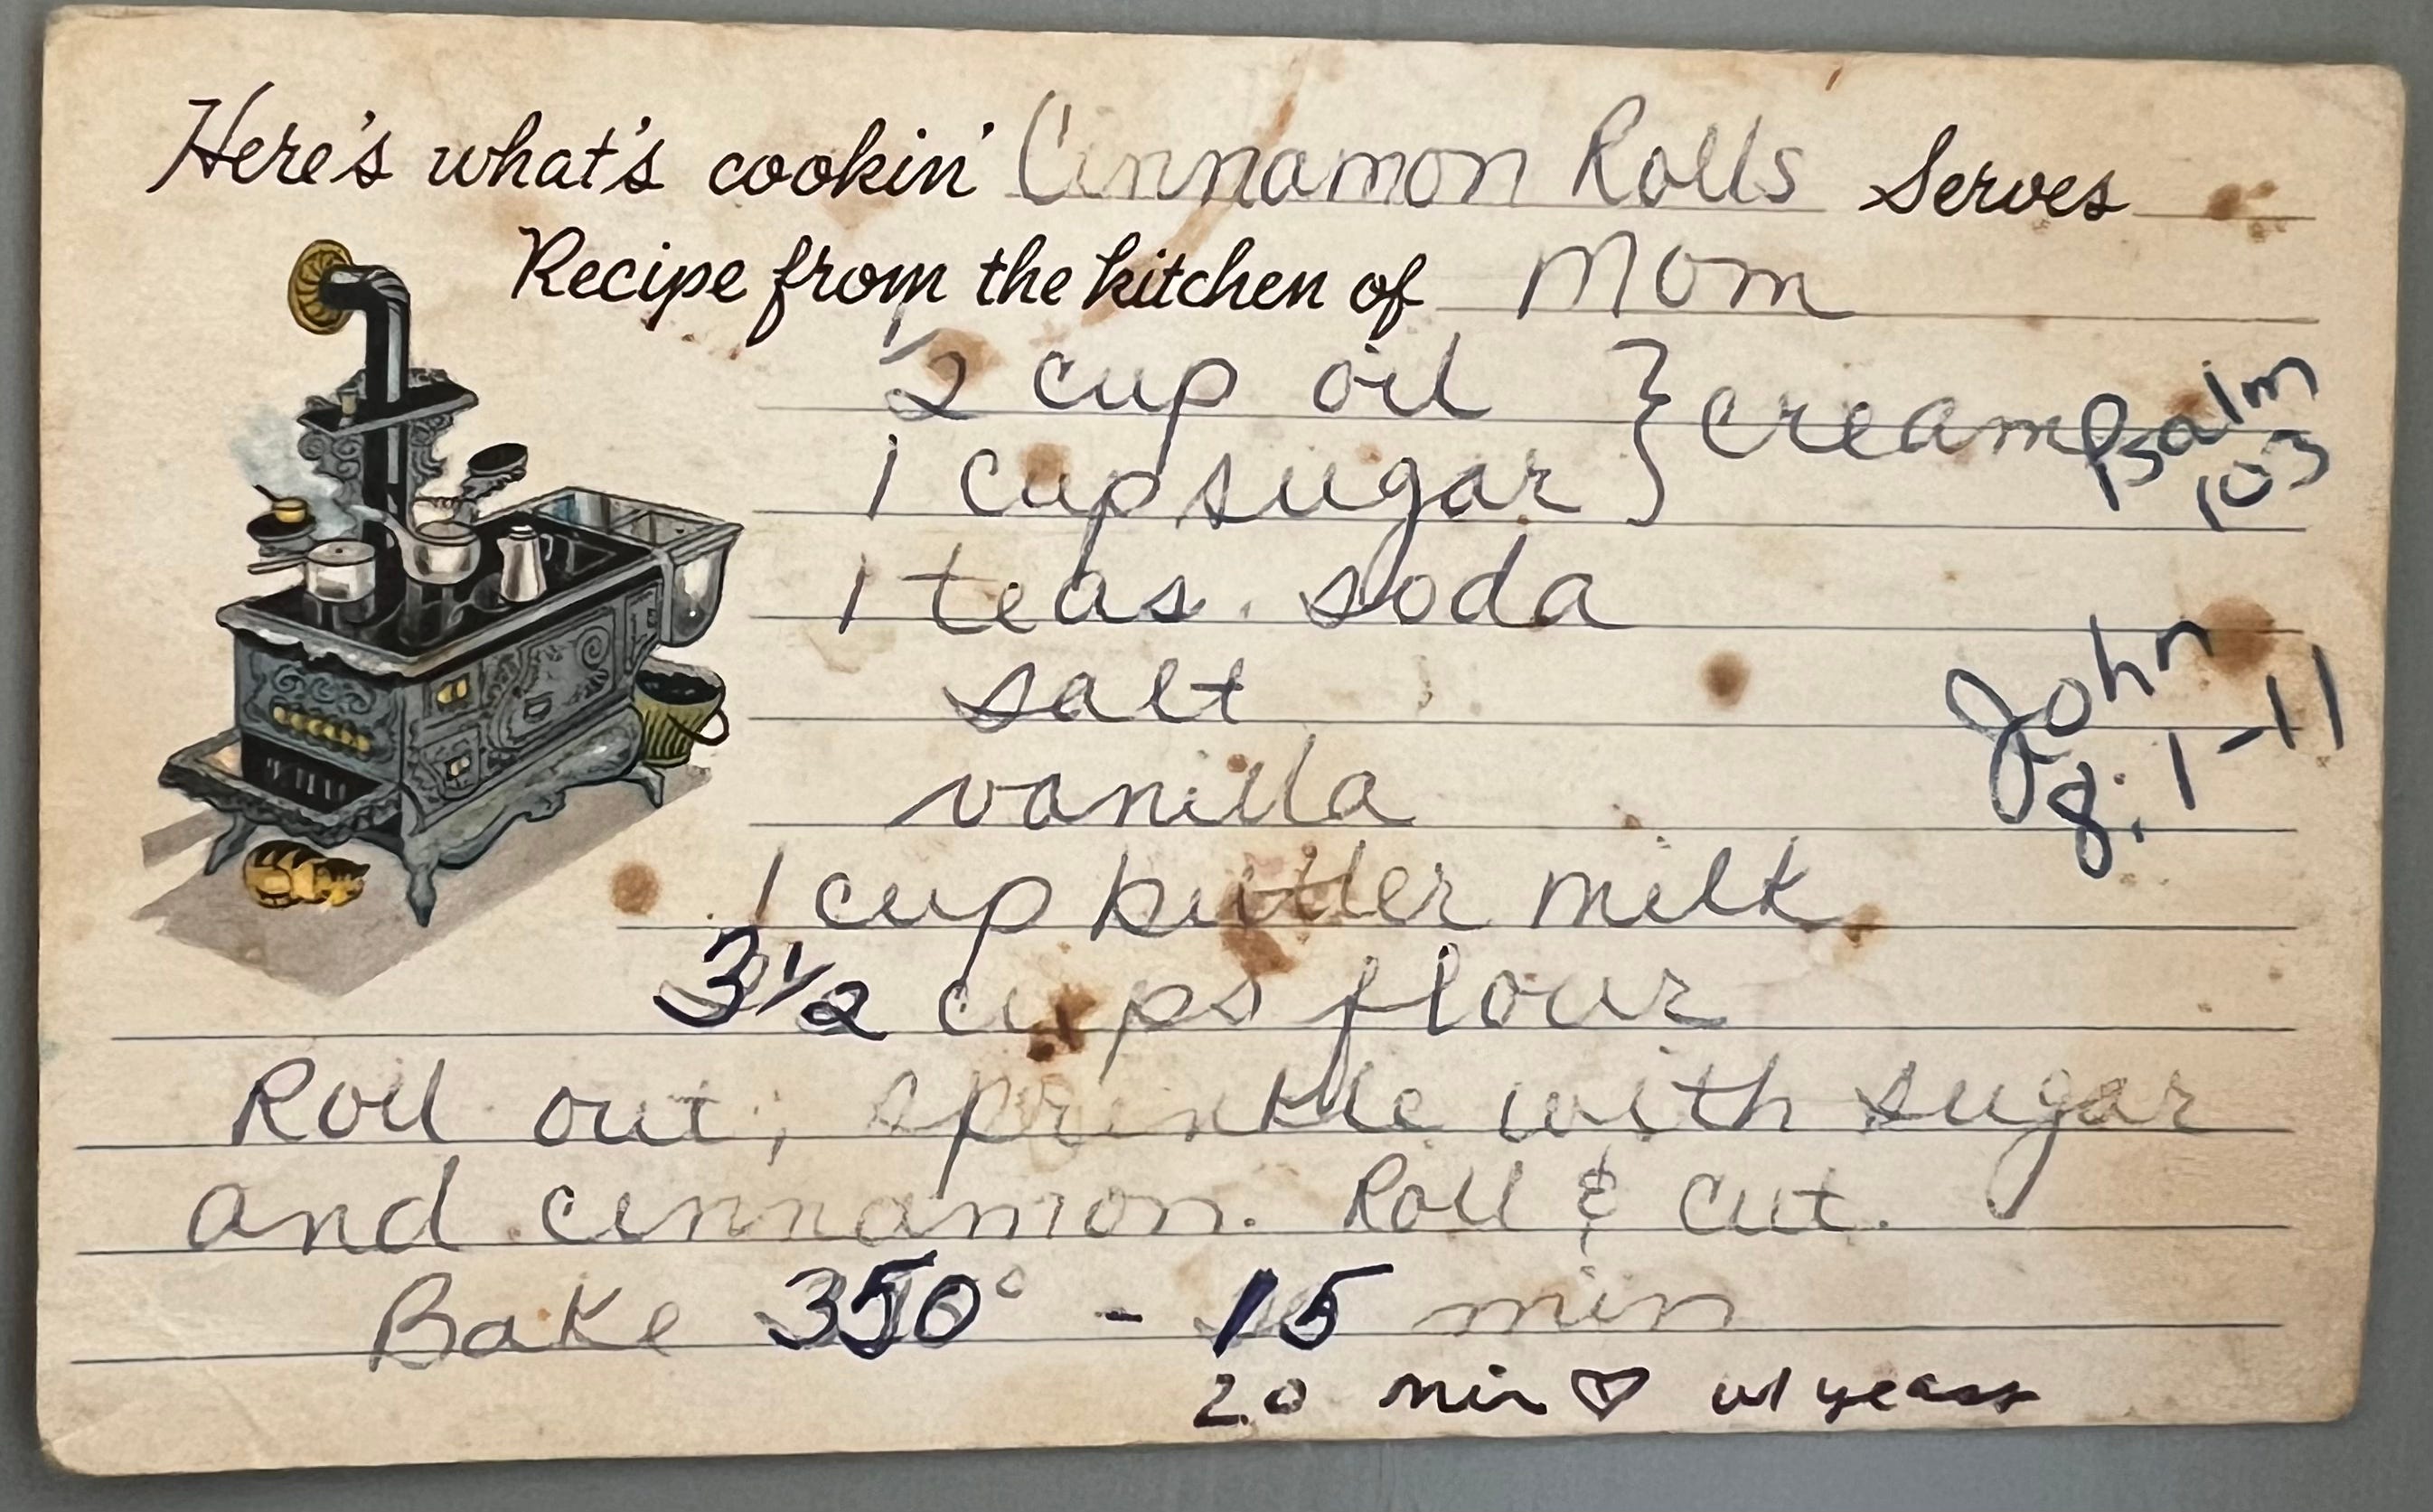 Here's what's cookin' Cinnamon Rolls Serves
Recipe from the kitchen of Mom
1/2 cup oil } cream
1 cup sugar }
Psalm
103
1 teas. soda
salt
John
8:1-11
vanilla
1 cup butter milk
3 1/2 cups flour
Roll out; sprinkle with sugar
and cinnamon. Roll & cut.
Bake 350° - 15 min
20 min ♡ w/ yeast